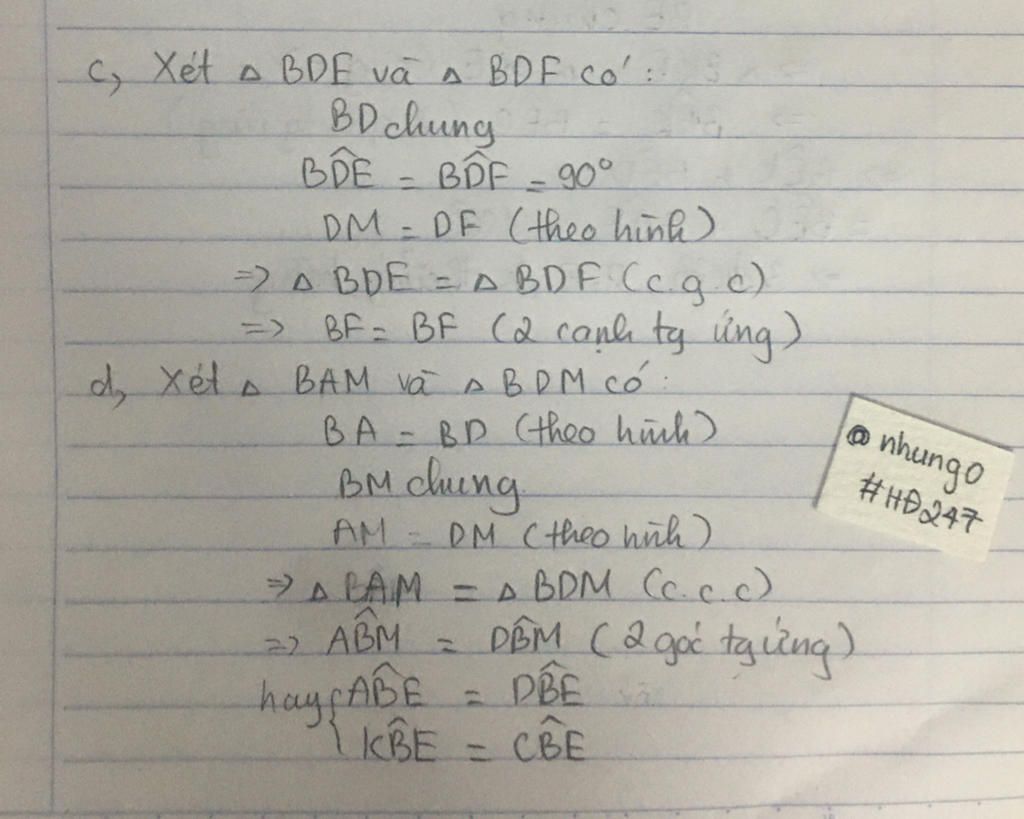 c, Xét △ BDE và △ BDF có:
BD chung
BD̂E = BD̂F = 90°
DM = DF (theo hình)
=> △ BDE = △ BDF (c.g.c)
=> BF = BF (2 cạnh tg ứng)
d, Xét △ BAM và △ BDM có:
BA = BD (theo hình)
BM chung
AM = DM (theo hình)
=> △ BAM = △ BDM (c.c.c)
=> AB̂M = DB̂M (2 góc tg ứng)
hay { AB̂E = DB̂E
KB̂E = CB̂E
@nhung0
#HĐ247